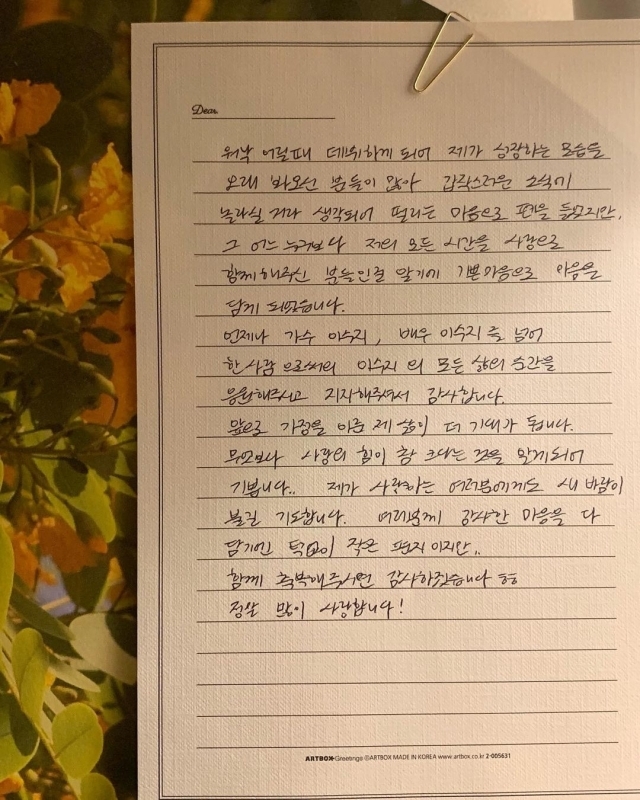 Dear
워낙 어릴때 데뷔하게 되어 제가 성장하는 모습을
오래 봐오신 분들이 많아 갑작스러운 소식에
놀라실 거라 생각되어 떨리는 마음으로 펜을 들었지만,
그 어느 누구보다 저의 모든 시간을 사랑으로
함께해주신 분들인걸 알기에 기쁜마음으로 마음을
담게 되었습니다.
언제나 가수 이수지, 배우 이수지를 넘어
한 사람으로써의 이수지의 모든 삶의 순간을
응원해주시고 지지해주셔서 감사합니다.
앞으로 가정을 이룬 제 삶이 더 기대가 됩니다.
무엇보다 사랑의 힘이 참 크다는 것을 알게되어
기쁩니다.. 제가 사랑하는 여러분에게도 새 바람이
불길 기도합니다. 여러분께 감사한 마음을 다
담기엔 턱없이 작은 편지이지만..
함께 축복해주시면 감사하겠습니다 ㅎㅎ
정말 많이 사랑합니다!
ARTBOX Greetings ⓒARTBOX MADE IN KOREA www.artbox.co.kr 2-005631